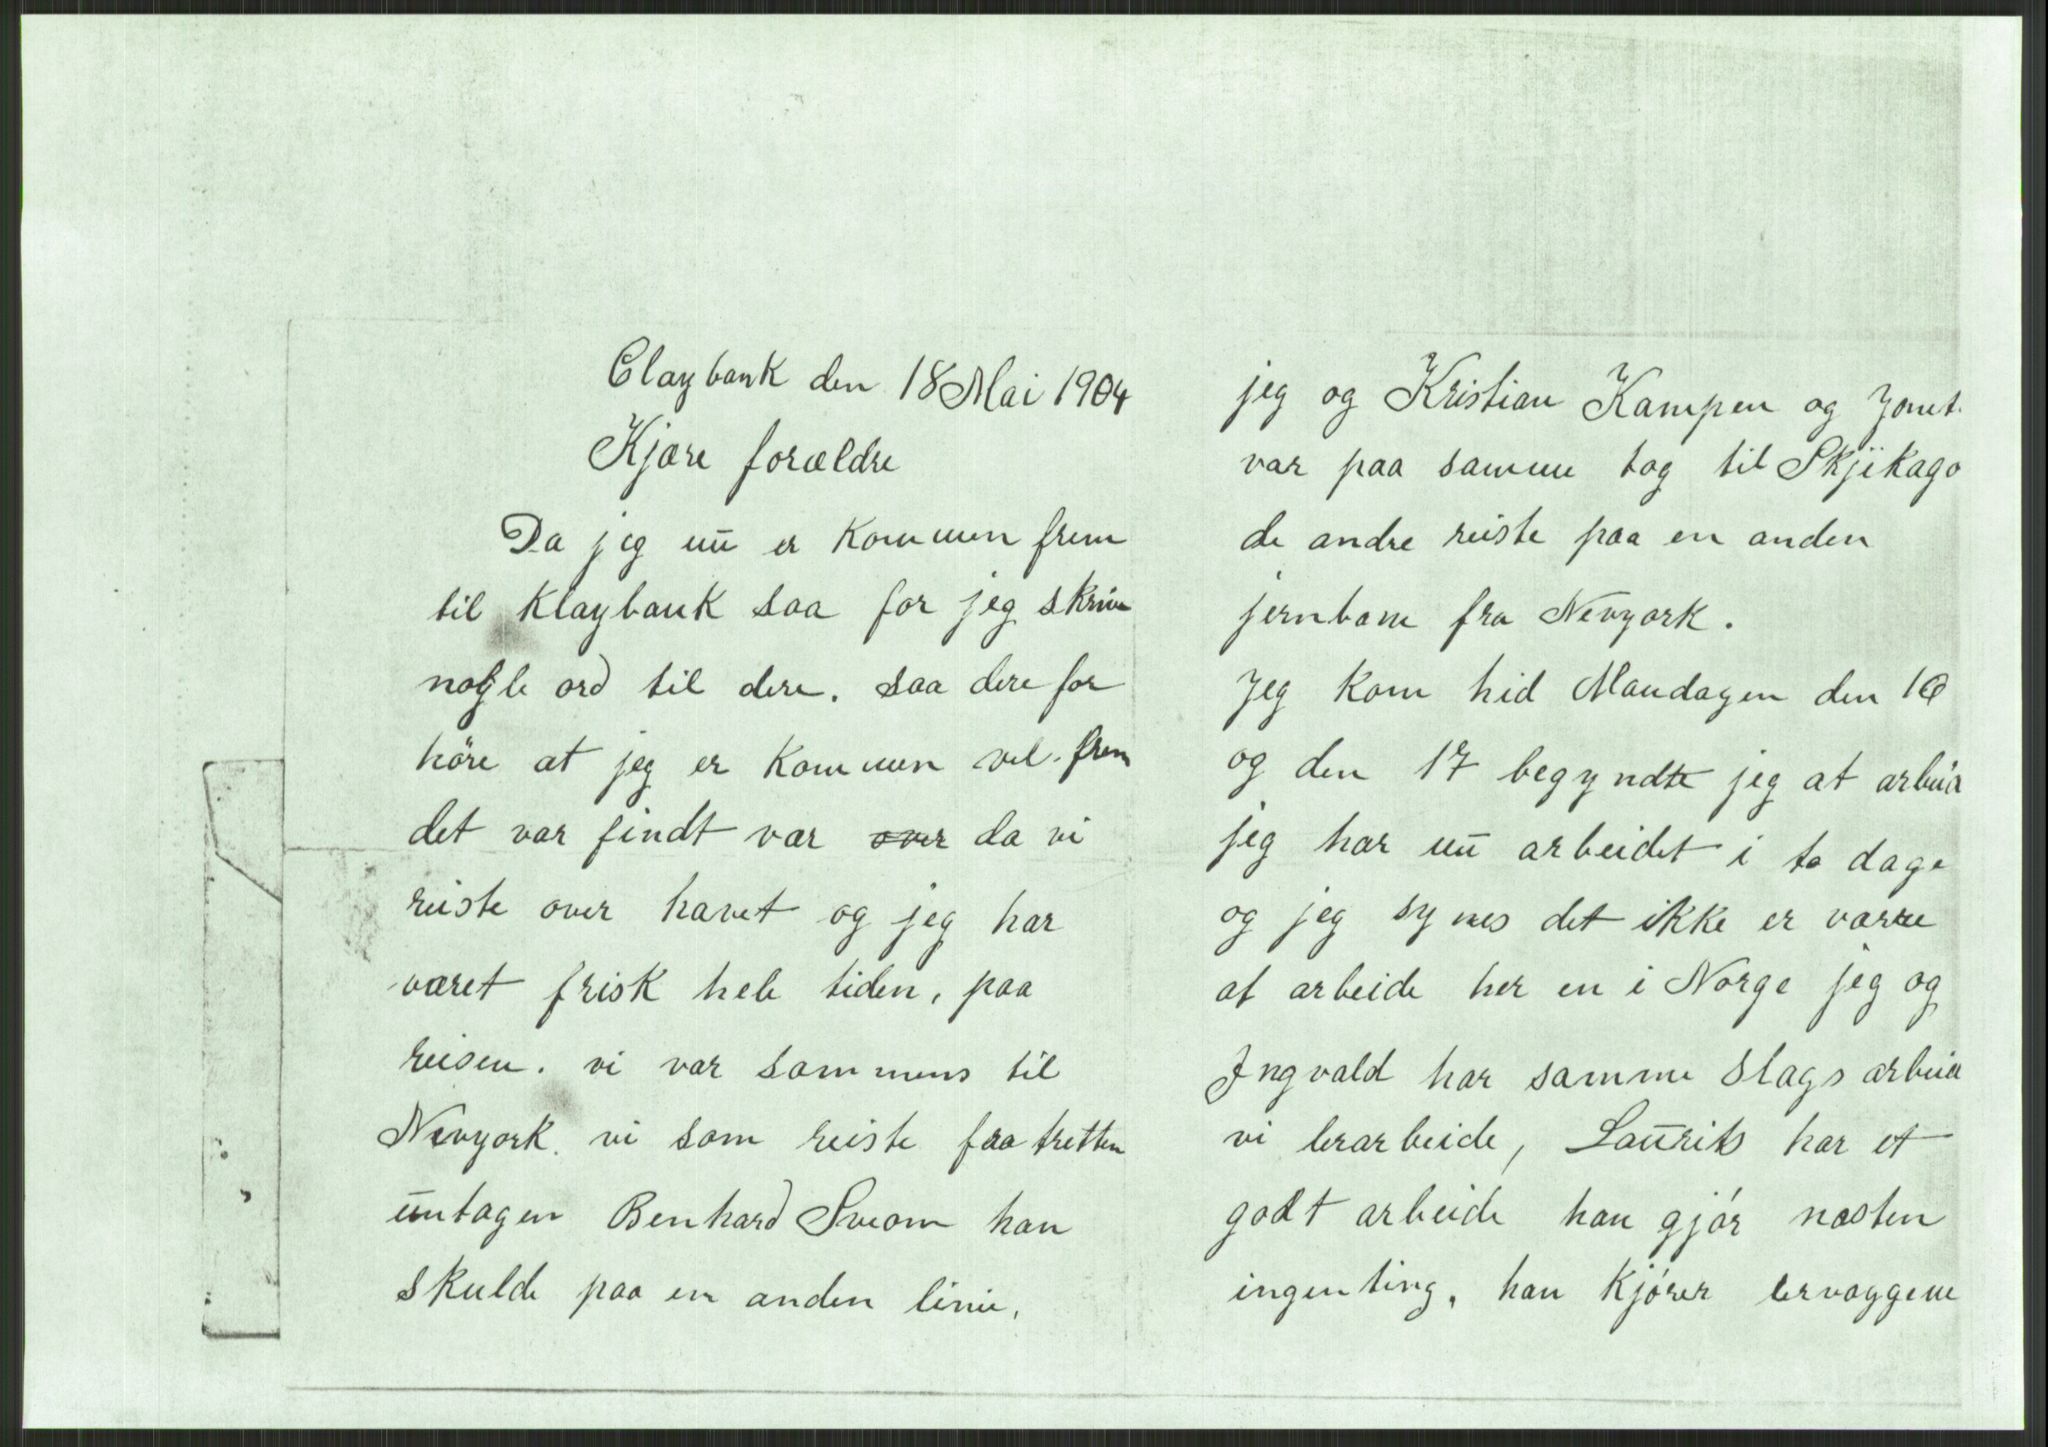 Claybank den 18 Mai 1904
Kjære forældre
Da jeg nu er kommen frem
til Klaybank saa for jeg skrive
nogle ord til dere. saa dere for
höre at jeg er kommen vel frem
det var findt vær over da vi
reiste over havet og jeg har
været frisk hele tiden, paa
reisen. vi var sammens til
Nevyork. vi som reiste fra tretten
untagen Benhard Sveom han
skulde paa en anden linie,
jeg og Kristian Kampen og
var paa samme tog til Skjikago
de andre reiste paa en anden
jernbane fra Nevyork.
Jeg kom hid Mandagen den 16
og den 17 begyndte jeg at arbeid
jeg har nu arbeidet i to dage
og jeg synes det ikke er værre
at arbeide her en i Norge jeg og
Ingvald har samme slags arbeid
vi lerarbeide, Laurits har et
godt arbeide han gjór næsten
ingenting, han kjórer lervaggene